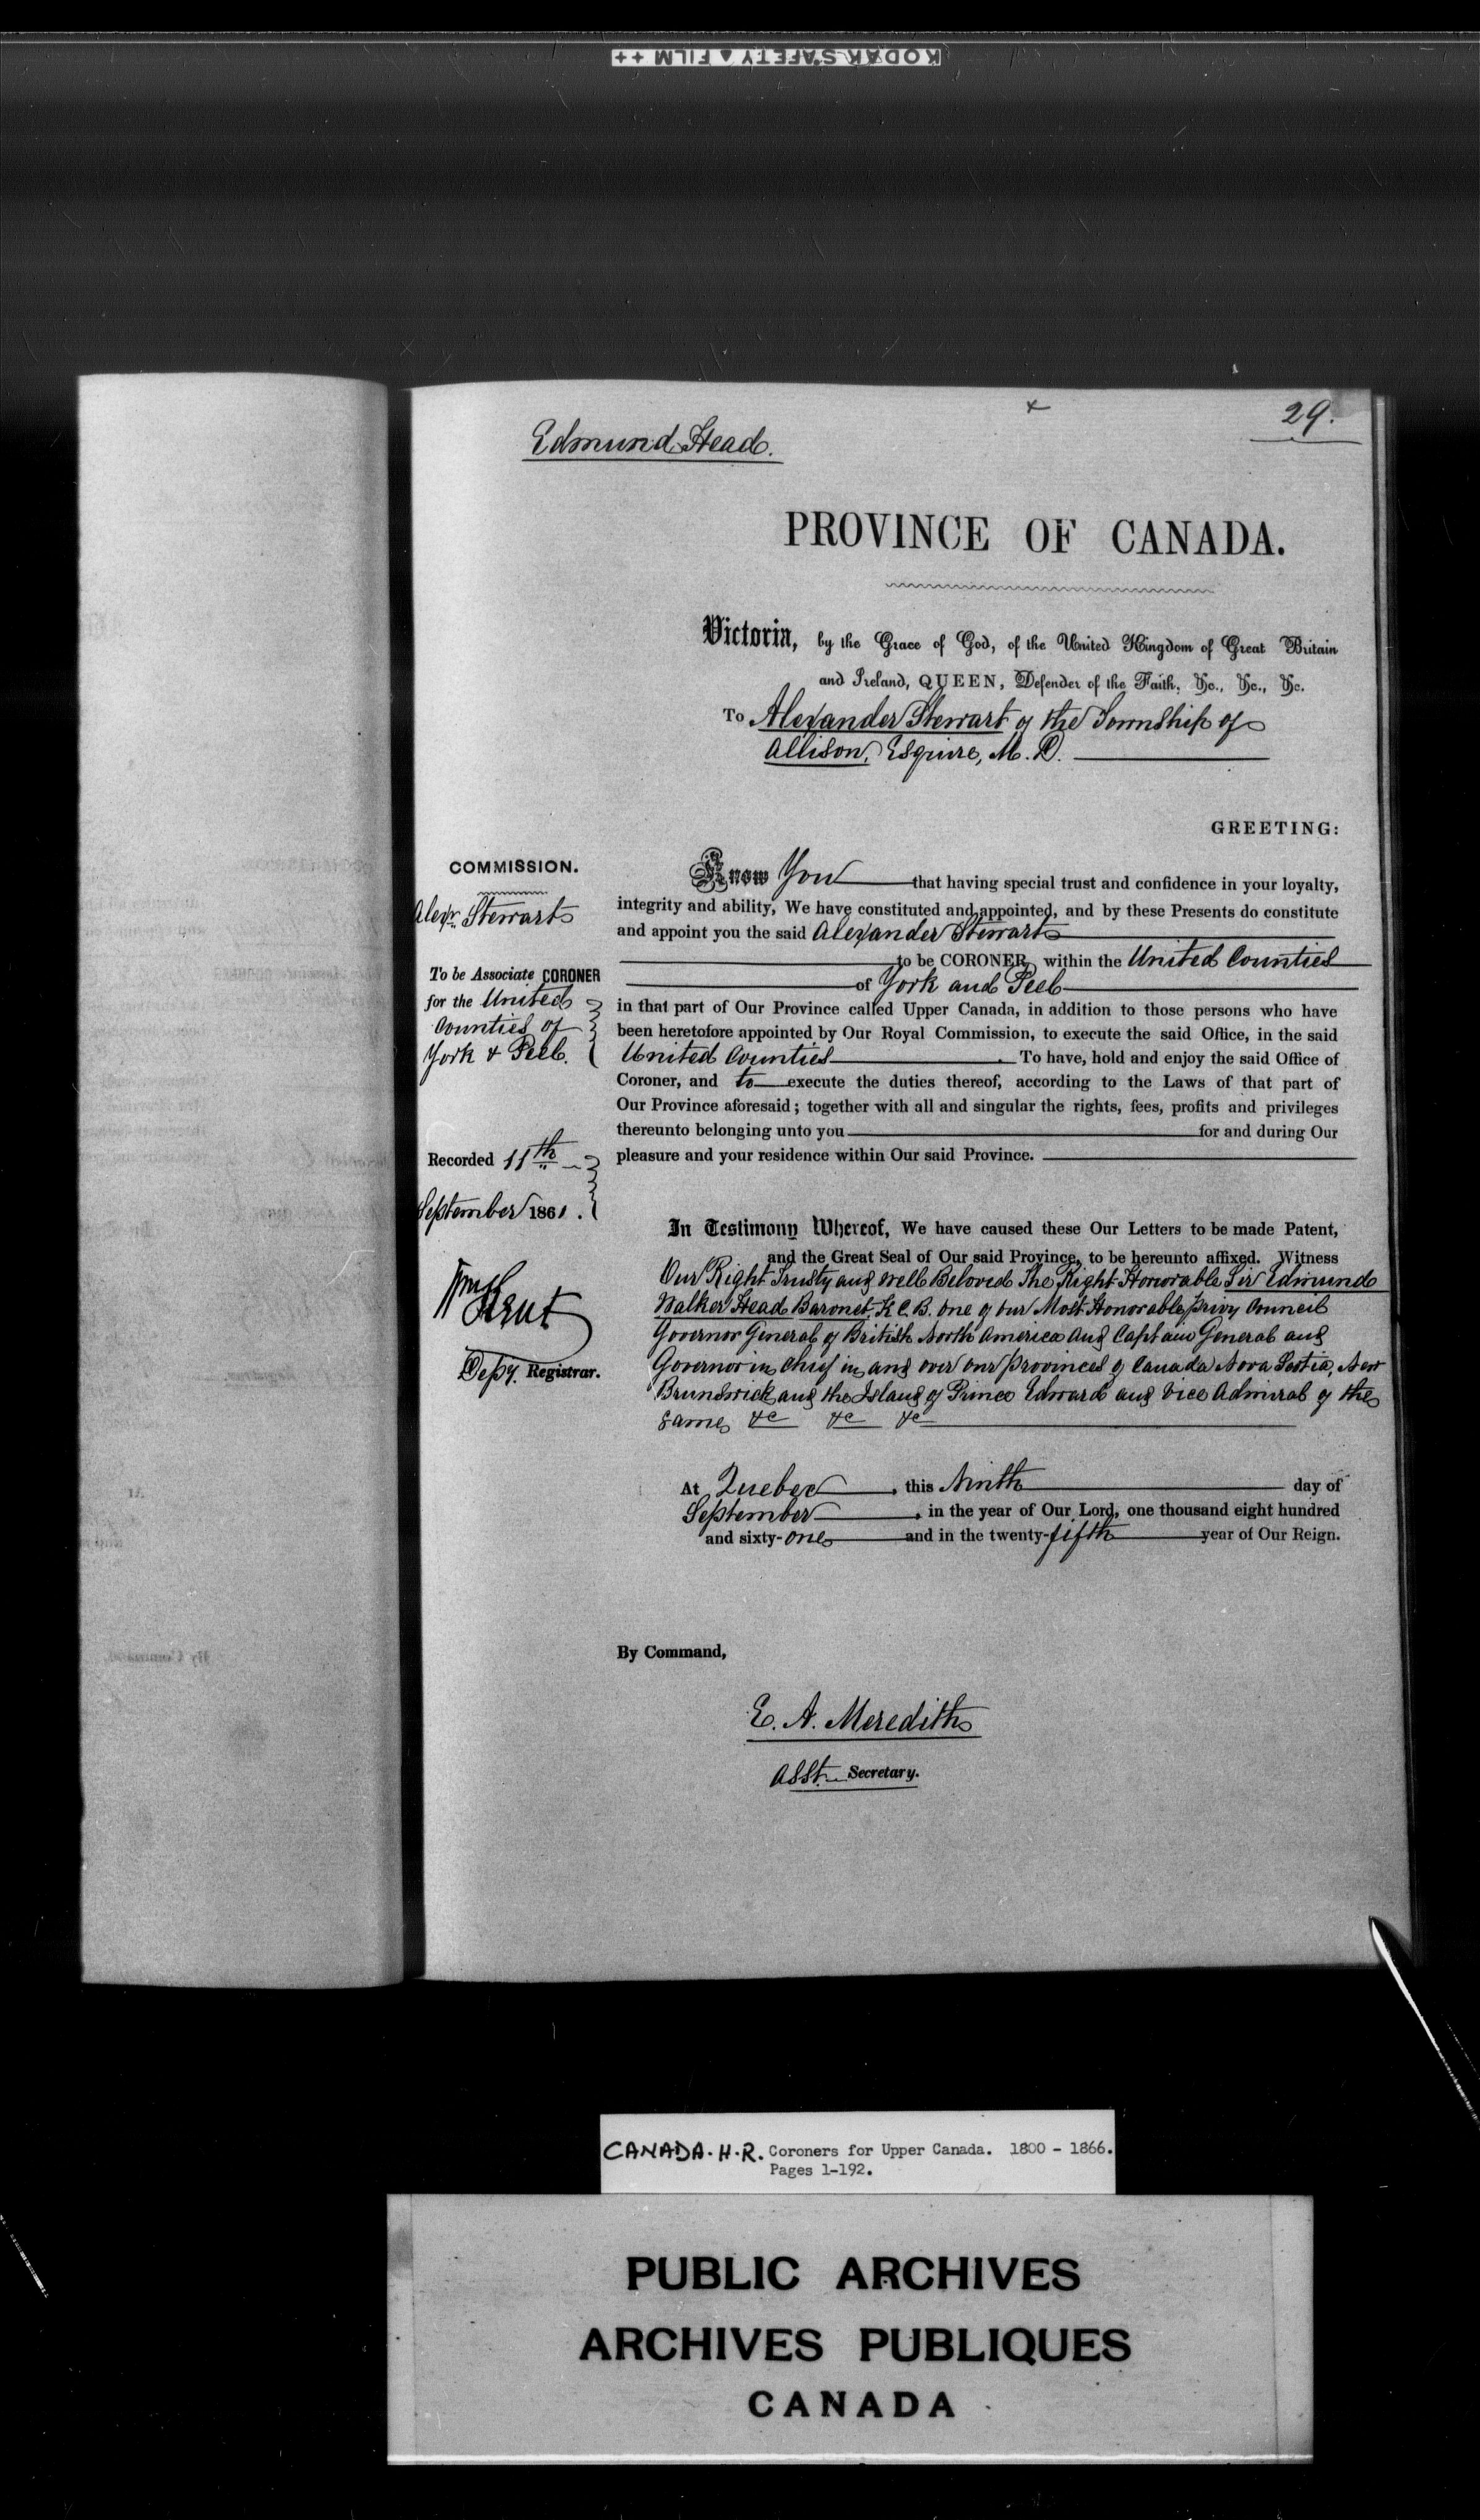 KODAK SAFETY ▲ FILM ++
29.
Edmund Head.
PROVINCE OF CANADA.
Victoria, by the Grace of God, of the United Kingdom of Great Britain
and Ireland, QUEEN, Defender of the Faith, &c., &c., &c.
To Alexander Stewart of the Township of
Allison, Esquire, M. D.
GREETING:
COMMISSION.
Alexr. Stewart
To be Associate CORONER
for the United
Counties of
York & Peel.
Recorded 11th
September 1861.
Wm Kent
Depy. Registrar.
Know You that having special trust and confidence in your loyalty,
integrity and ability, We have constituted and appointed, and by these Presents do constitute
and appoint you the said Alexander Stewart
to be CORONER within the United Counties
of York and Peel
in that part of Our Province called Upper Canada, in addition to those persons who have
been heretofore appointed by Our Royal Commission, to execute the said Office, in the said
United Counties. To have, hold and enjoy the said Office of
Coroner, and to execute the duties thereof, according to the Laws of that part of
Our Province aforesaid; together with all and singular the rights, fees, profits and privileges
thereunto belonging unto you for and during Our
pleasure and your residence within Our said Province.
In Testimony Whereof, We have caused these Our Letters to be made Patent,
and the Great Seal of Our said Province, to be hereunto affixed. Witness
Our Right Trusty and well Beloved The Right Honorable Sir Edmund
Walker Head Baronet, K.C.B. one of our Most Honorable privy Council
Governor General of British North America and Captain General and
Governor in Chief in and over our provinces of Canada Nova Scotia, New
Brunswick and the Island of Prince Edward and Vice Admiral of the
same &c &c &c
At Quebec, this Ninth day of
September, in the year of Our Lord, one thousand eight hundred
and sixty-one and in the twenty-fifth year of Our Reign.
By Command,
E. A. Meredith
Asst. Secretary.
CANADA. H.R. Coroners for Upper Canada. 1800 - 1866.
Pages 1-192.
PUBLIC ARCHIVES
ARCHIVES PUBLIQUES
CANADA